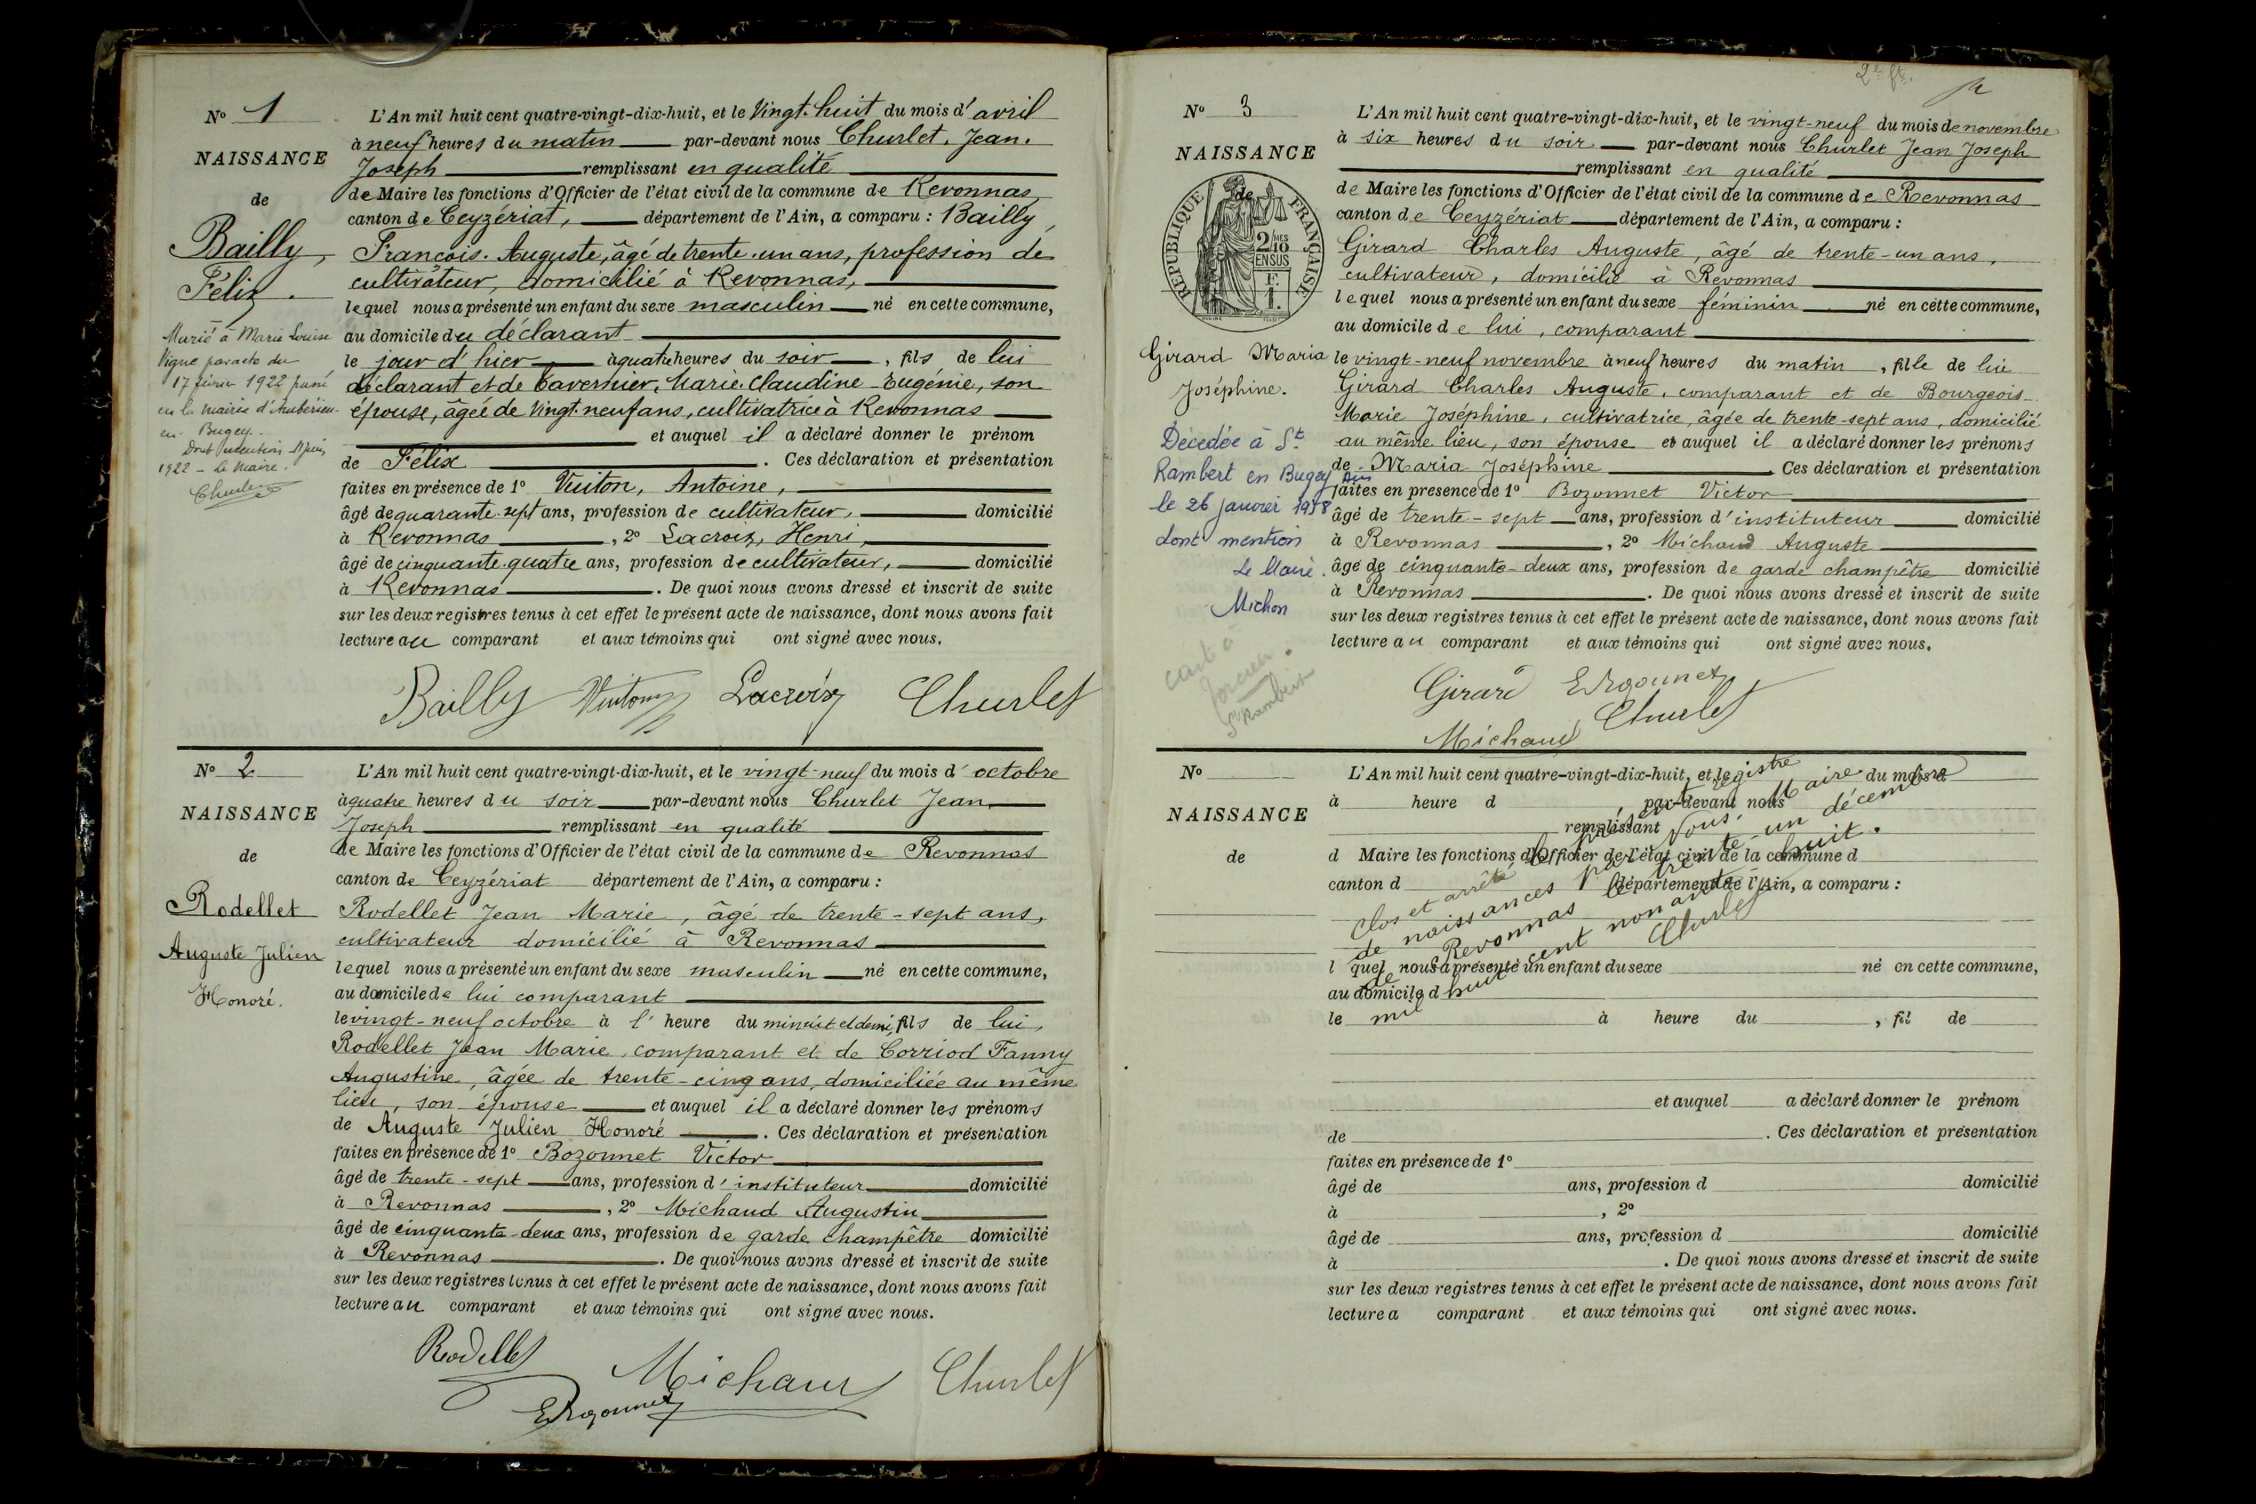 N° 1
NAISSANCE
de
Bailly,
Félix.
Marié à Marie Louise
Vigne par acte du
17 février 1922 passé
en la mairie d'Ambérieu
en Bugey.
Dont mention
1922 - Le Maire.
Churlet
L'An mil huit cent quatre-vingt-dix-huit, et le Vingt-huit du mois d'avril
à neuf heures du matin par-devant nous Churlet, Jean.
Joseph remplissant en qualité
de Maire les fonctions d'Officier de l'état civil de la commune de Revonnas,
canton de Ceyzériat, département de l'Ain, a comparu : Bailly,
François-Auguste, âgé de trente-un ans, profession de
cultivateur, domicilié à Revonnas,
lequel nous a présenté un enfant du sexe masculin né en cette commune,
au domicile du déclarant
le jour d'hier à quatre heures du soir, fils de lui
déclarant et de Tavernier, Marie Claudine-Eugénie, son
épouse, âgée de vingt-neuf ans, cultivatrice à Revonnas
et auquel il a déclaré donner le prénom
de Félix. Ces déclaration et présentation
faites en présence de 1° Vuiton, Antoine,
âgé de quarante-sept ans, profession de cultivateur, domicilié
à Revonnas, 2° Lacroix, Henri,
âgé de cinquante-quatre ans, profession de cultivateur, domicilié
à Revonnas. De quoi nous avons dressé et inscrit de suite
sur les deux registres tenus à cet effet le présent acte de naissance, dont nous avons fait
lecture au comparant et aux témoins qui ont signé avec nous.
Bailly Vuiton Lacroix Churlet
N° 2
NAISSANCE
de
Rodellet
Auguste Julien
Honoré.
L'An mil huit cent quatre-vingt-dix-huit, et le vingt-neuf du mois d'octobre
à quatre heures du soir par-devant nous Churlet Jean
Joseph remplissant en qualité
de Maire les fonctions d'Officier de l'état civil de la commune de Revonnas
canton de Ceyzériat département de l'Ain, a comparu :
Rodellet Jean Marie, âgé de trente-sept ans,
cultivateur domicilié à Revonnas
lequel nous a présenté un enfant du sexe masculin né en cette commune,
au domicile de lui comparant
le vingt-neuf octobre à l'heure du minuit et demi, fils de lui,
Rodellet Jean Marie, comparant et de Corriod Fanny
Augustine, âgée de trente-cinq ans, domiciliée au même
lieu, son épouse et auquel il a déclaré donner les prénoms
de Auguste Julien Honoré. Ces déclaration et présentation
faites en présence de 1° Bozonnet Victor
âgé de trente-sept ans, profession d'instituteur domicilié
à Revonnas, 2° Michaud Augustin
âgé de cinquante-deux ans, profession de garde champêtre domicilié
à Revonnas. De quoi nous avons dressé et inscrit de suite
sur les deux registres tenus à cet effet le présent acte de naissance, dont nous avons fait
lecture au comparant et aux témoins qui ont signé avec nous.
Rodellet Michaud Churlet
Bozonnet
N° 3
NAISSANCE
de
RÉPUBLIQUE FRANÇAISE
2/10 MES
EN SUS
F.
1.
Girard Maria
Joséphine.
Décédée à St
Rambert en Bugey Ain
le 26 janvier 1958
dont mention
Le Maire.
Michon
St Rambert
L'An mil huit cent quatre-vingt-dix-huit, et le vingt-neuf du mois de novembre
à six heures du soir par-devant nous Churlet Jean Joseph
remplissant en qualité
de Maire les fonctions d'Officier de l'état civil de la commune de Revonnas
canton de Ceyzériat département de l'Ain, a comparu :
Girard Charles Auguste, âgé de trente-un ans,
cultivateur, domicilié à Revonnas
lequel nous a présenté un enfant du sexe féminin né en cette commune,
au domicile de lui, comparant
le vingt-neuf novembre à neuf heures du matin, fille de lui
Girard Charles Auguste, comparant et de Bourgeois
Marie Joséphine, cultivatrice, âgée de trente-sept ans, domicilié
au même lieu, son épouse et auquel il a déclaré donner les prénoms
de Maria Joséphine Ces déclaration et présentation
faites en presence de 1° Bozonnet Victor
âgé de trente-sept ans, profession d'instituteur domicilié
à Revonnas, 2° Michaud Auguste
âgé de cinquante-deux ans, profession de garde champêtre domicilié
à Revonnas. De quoi nous avons dressé et inscrit de suite
sur les deux registres tenus à cet effet le présent acte de naissance, dont nous avons fait
lecture au comparant et aux témoins qui ont signé avec nous.
Girard Bozonnet
Churlet
Michaud
N°
NAISSANCE
de
L'An mil huit cent quatre-vingt-dix-huit, et le du mois d
à heure d par-devant nous
remplissant
d Maire les fonctions d'Officier de l'état civil de la commune d
canton d département de l'Ain, a comparu :
l quel nous a présenté un enfant du sexe né en cette commune,
au domicile d
le à heure du , fil de
et auquel a déclaré donner le prénom
de . Ces déclaration et présentation
faites en présence de 1°
âgé de ans, profession d domicilié
à , 2°
âgé de ans, profession d domicilié
à . De quoi nous avons dressé et inscrit de suite
sur les deux registres tenus à cet effet le présent acte de naissance, dont nous avons fait
lecture a comparant et aux témoins qui ont signé avec nous.
Clos et arrêté le présent registre
de naissances par Nous, Maire
de Revonnas le trente-un décembre
mil huit cent nonante huit.
Churlet